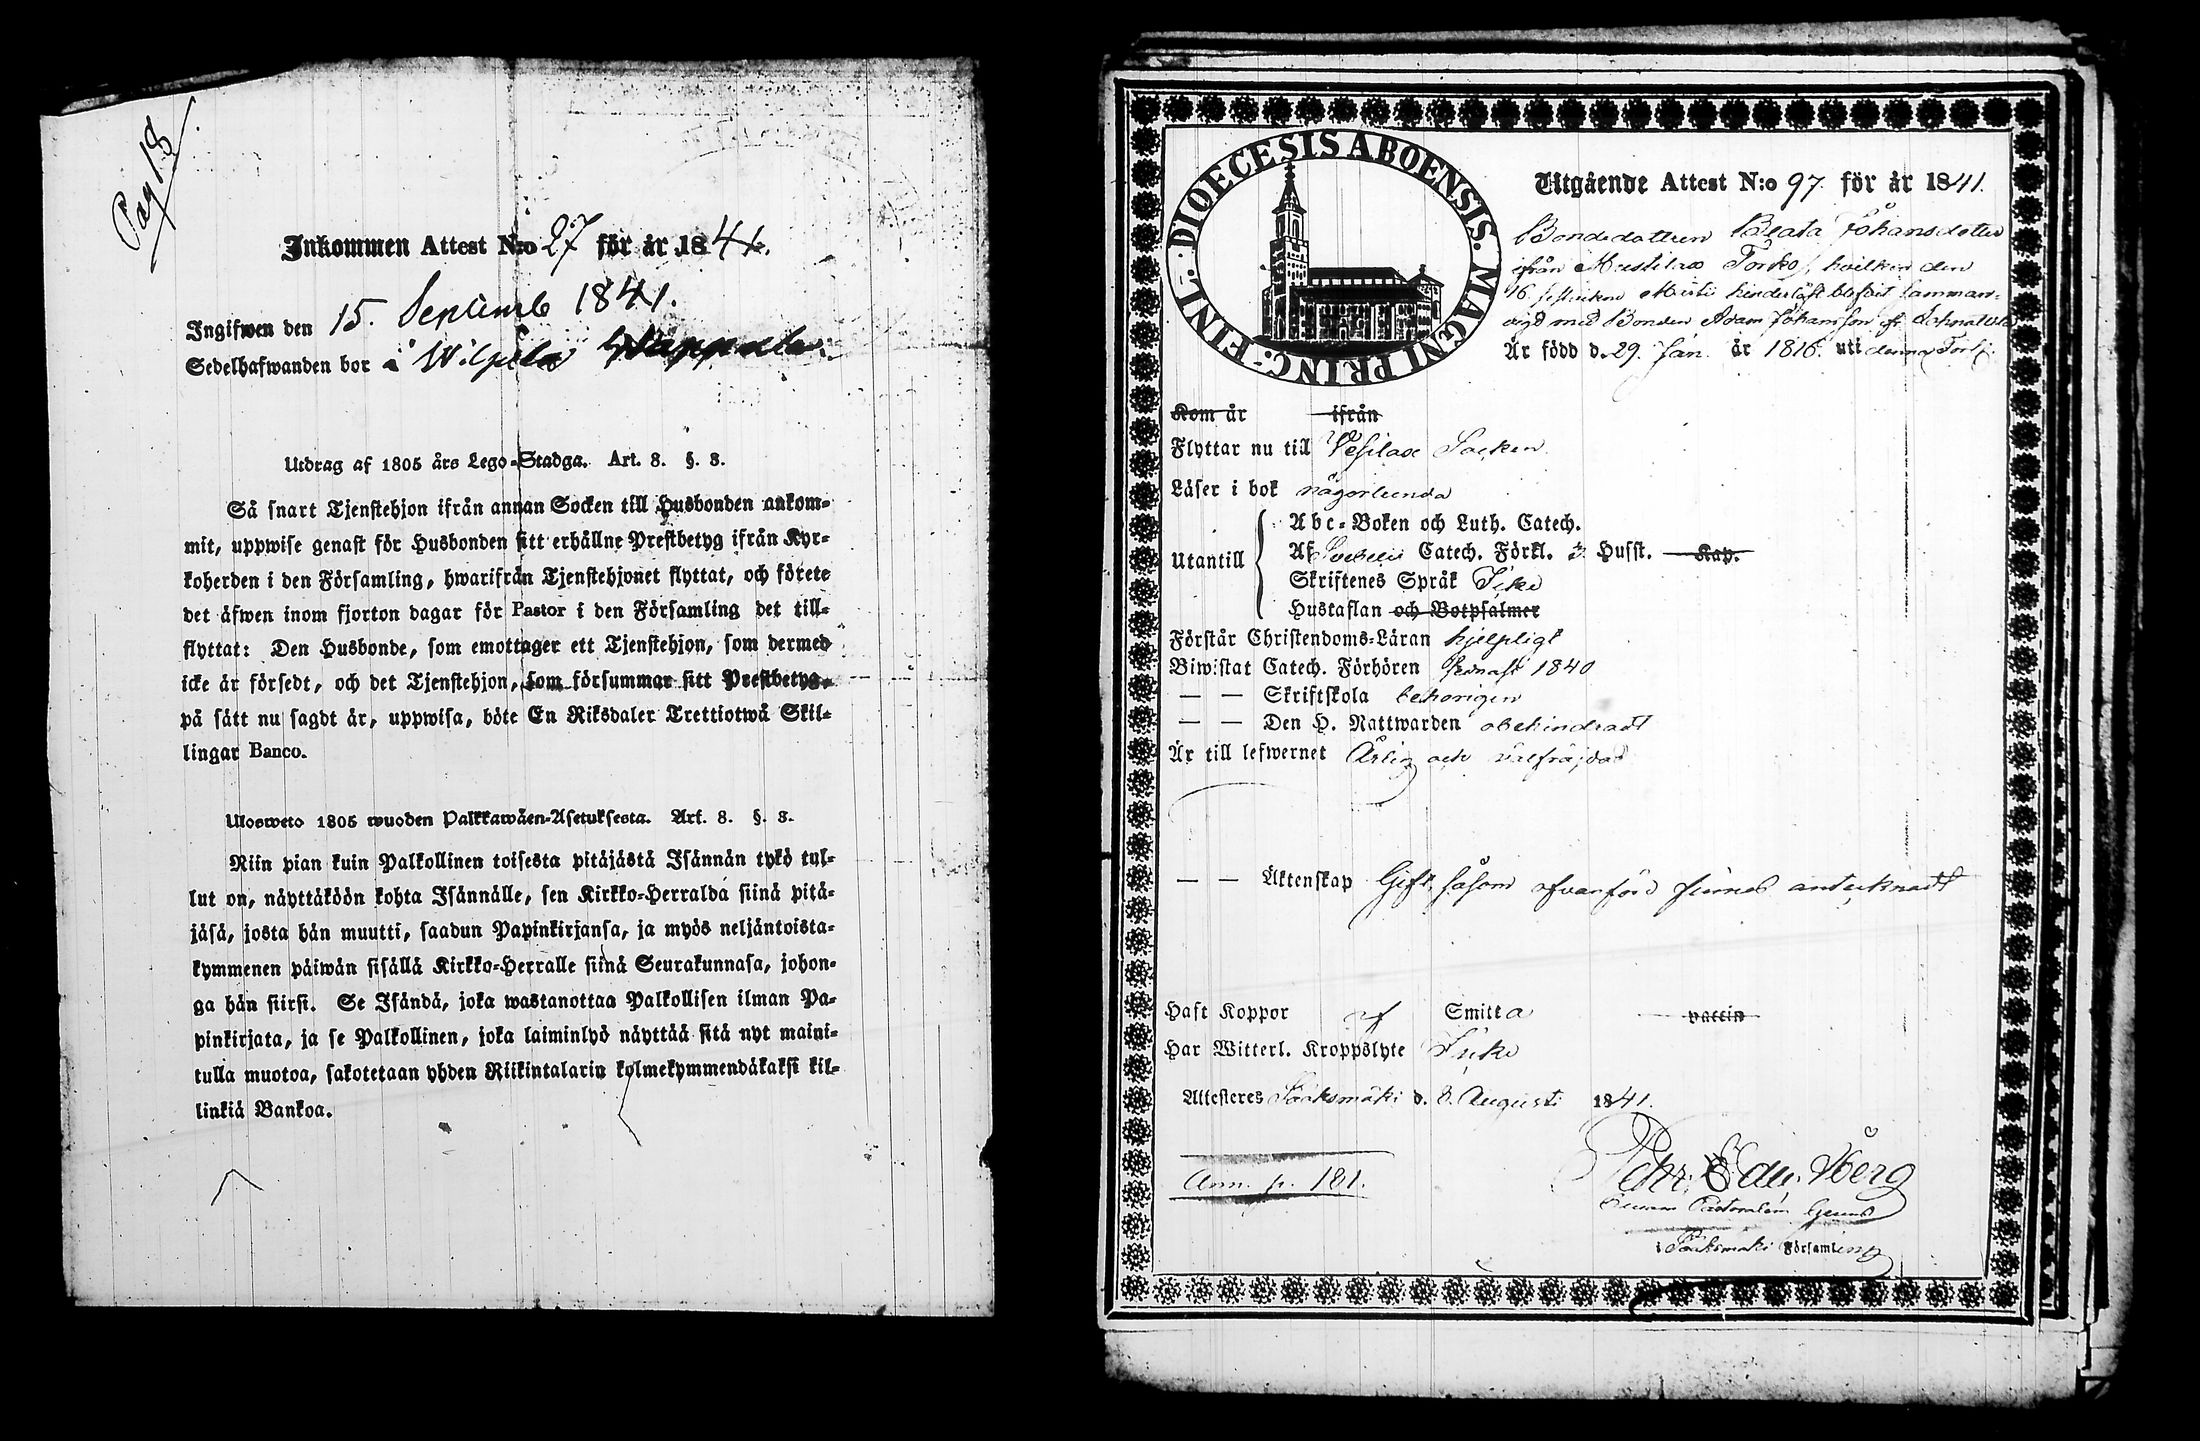 Pag 18
Inkommen Attest N:o 27 för år 1841.
Ingifwen den 15. Septemb 1841.
Sedelhafwanden bor å
Utdrag af 1805 års Lego-Stadga. Art. 8. §. 8.
Så snart Tjenstehjon ifrån annan Socken till Husbonden ankom-
mit, uppwise genast för Husbonden sitt erhållne Prestbetyg ifrån Kyr-
koherden i den Församling, hwarifrån Tjenstehjonet flyttat, och förete
det äfwen inom fjorton dagar för Pastor i den Församling det till-
flyttat: Den Husbonde, som emottager ett Tjenstehjon, som dermed
icke är försedt, och det Tjenstehjon, som försummar sitt Prestbetyg,
på sätt nu sagdt är, uppwisa, böte En Riksdaler Trettiotwå Skil-
lingar Banco.
Ulosweto 1805 wuoden Palkkawäen-Asetuksesta. Art. 8. §. 8.
Niin pian kuin Palkollinen toisesta pitäjästä Isännän tykö tul-
lut on, näyttäköön kohta Isännälle, sen Kirkko-Herralda siinä pitä-
jäsä, josta hän muutti, saadun Papinkirjansa, ja myös neljäntoista-
kymmenen päiwän sisällä Kirkko-Herralle siinä Seurakunnasa, johon-
ga hän siirsi. Se Isändä, joka wastanottaa Palkollisen ilman Pa-
pinkirjata, ja se Palkollinen, joka laiminlyö näyttää sitä nyt maini-
tulla muotoa, sakotetaan yhden Riikintalarin kolmekymmendäkaksi kil-
linkiä Bankoa.
DIOECESIS ABOENSIS. MAGNI PRINC: FINL:
Utgående Attest N:o 97. för år 1841.
Bondedottren Beata Johansdotter
ifrån hvilken den
16. blifvit samman-
vigd med Bonden Adam Johansson
Är född d. 29. Jan. år 1816. uti denna Förs.
Kom år ifrån
Flyttar nu till Vesilax Socken
Läser i bok någorlunda
Utantill
Abc-Boken och Luth. Catech.
Af Svebelii Catech. Förkl. Husst. Kap.
Skriftenes Språk Icke
Hustaflan och Botpsalmer
Förstår Christendoms-Läran hjelpligt
Biwistat Catech. Förhören senast 1840
— — Skriftskola behörigen
— — Den H. Nattwarden obehindradt
Är till lefwernet Ärlig och välfräjdad
— — Äktenskap Gift, såsom ofvanföre finnes antecknadt
Haft Koppor af Smitta vaccin
Har Witterl. Kroppslyte Icke
Attesteres Sääksmäki d. 8. Augusti 1841.
Ann. p. 181.
Pehr Edv. Åberg
i Sääksmäki Församling